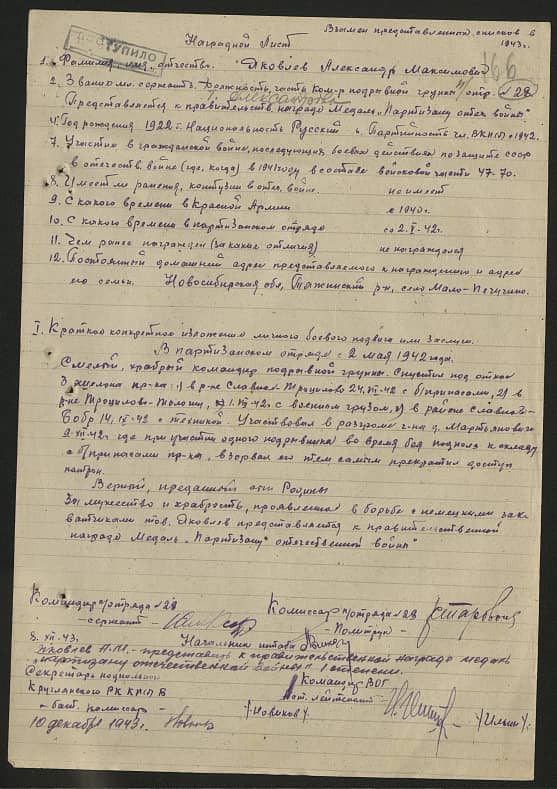 Взамен представленных списков в
1943г.
ПОСТУПИЛО
Наградной Лист
166
1. Фамилия, имя, отчество. Яковлев Александр Максимович
2. Звание мл. сержант 3. Должность, часть ком-р подрывной группы п/отр. 28
Представляется к правительств. награде Медаль "Партизану отеч. войны"
4. Год рождения 1922 г. Национальность Русский 6. Партийность чл. ВКП(б) с 1942.
7. Участие в гражданской войне, последующих боевых действиях по защите СССР
в отечеств. войне (где, когда) в 1941 году в составе войсковой части 47-70.
8. Имеет ли ранения, контузии в отеч. войне. не имеет
9. С какого времени в Красной Армии с 1940г.
10. С какого времени в партизанском отряде со 2.V-42г.
11. Чем ранее награжден (за какие отличия) не награждался
12. Постоянный домашний адрес представляемого к награждению и адрес
его семьи. Новосибирская обл, Тяжинский р-н, село Мало-Пичугино.
I. Краткое конкретное изложение личного боевого подвига или заслуги.
В партизанском отряде с 2 мая 1942 года.
Смелый, храбрый командир подрывной группы. Спустил под откос
3 эшелона пр-ка: 1) в р-не Славное-Троцилово 24. -42г с б/припасами, 2) в
р-не Троцилово-Толочин, 1. -42г с военным грузом, 3) в районе Славное-
Бобр 14. -42г с техникой. Участвовал в разгроме г-на д.
9-XII-42г. где при участии одного подрывника во время боя подполз к складу
с б/припасами пр-ка, взорвал его тем самым прекратил доступ
патрон.
Верный, преданный сын Родины
За мужество и храбрость, проявленные в борьбе с немецкими зах-
ватчиками тов. Яковлев представляется к правительственной
награде Медаль "Партизану отечественной войны"
Командир п/отряда №28
-сержант-
Комиссар п/отряда №28
-Политрук-
8. XII. 43. Начальник штаба
Яковлев А.М. - представить к правительственной награде медаль
"партизану отечественной войны" I степени.
Секретарь подпольного
Круглянского РК КП(б)Б
- бат. комиссар -
/Новиков/.
Командир ВОГ
ст. лейтенант
/Ильин/.
10 декабря 1943г.